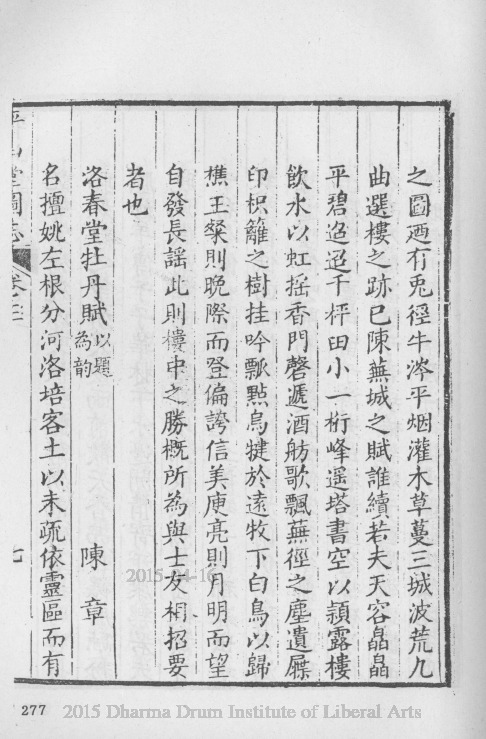 之圖迺有兎徑牛涔平烟灌木草蔓三城波荒九
曲選樓之跡已陳蕪城之賦誰續若夫天容皛皛
平碧迢迢千枰田小一桁峰遥塔書空以頴露樓
飲水以虹摇香門磬遞酒舫歌飄蕪徑之塵遺屧
印枳籬之樹挂吟瓢㸃烏犍於遠牧下白鳥以歸
樵王粲則晚際而登偏誇信美庾亮則月明而望
自發長謡此則樓中之勝概所為與士友相招要
者也
洛春堂牡丹賦以題為韵 陳章
名擅姚左根分河洛培客土以未疏依靈區而有
平山堂圖志 卷之三 七
277 2015 Dharma Drum Institute of Liberal Arts
2015-04-16